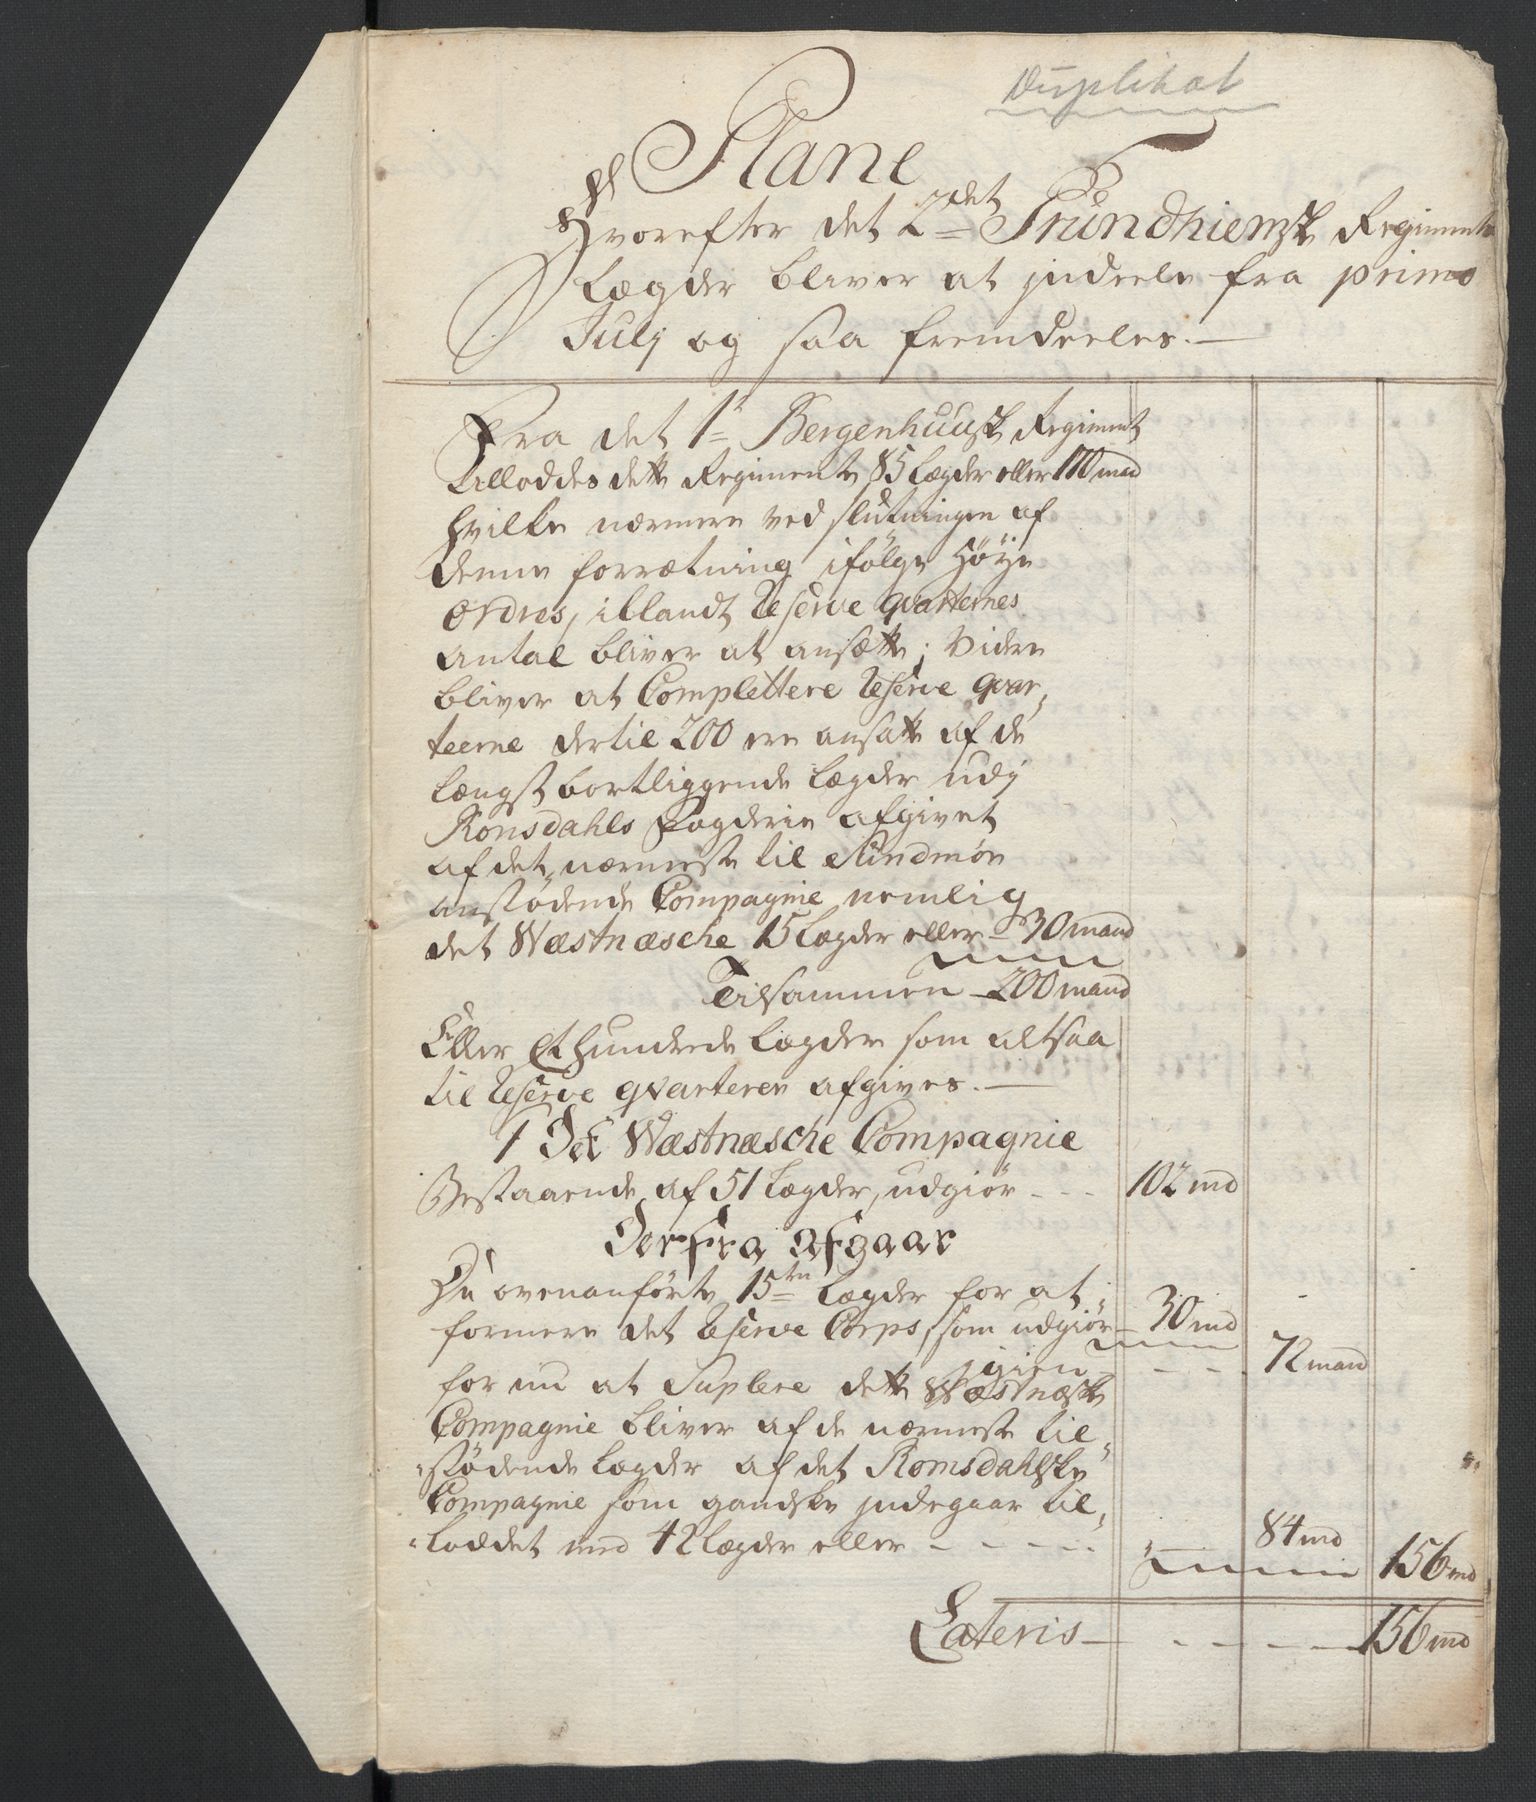 Duplikat
Plane
Hvorefter det 2det Trundhiemsk Regiments
Lægder bliver at jndeele fra primo
Julj og saa fremdeeles.—
Fra det 1te Bergenhuusk Regiment
Tilloddes dette Regiment 85 Lægder eller 170 mad
hvilke nærmere ved slutningen af
denne forrætning ifølge Høye
Ordres, iblandt Reserve qvarterernes
Antal bliver at ansætte; Videre
bliver at Complettere Reserve qvar,
teerne dertil 200 ere ansatte af de
længst bortliggende Lægder udj
Romsdahls Fogderie afgivet
af det nærmeste til Sundmør
anstødende Compagnie nemlig
det Wæstnæsche 15 Lægder eller — 30 mand
Tilsammen — 200 mand
Eller Et hundrede Lægder som altsaa
til Reserve qvarteren afgives.—
1 Det Wæstnæsche Compagnie
Bestaaende af 51 Lægder, udgiør - - - 102 md
Derfra afgaar
De ovenanførte 15ten Lægder for at
formere det Reserve Corps, som udgiør — 30 md
igien - - - 72 mand
for nu at Suplere dette Wæstnæske
Compagnie bliver af de nærmeste til,,
,,stødende Lægder af det Romsdahlske
Compagnie som gandske jndegaar til,,
,,loddet med 42 Lægder eller - - - - - 84 md
156 md
Lateris — - - - — 156 md